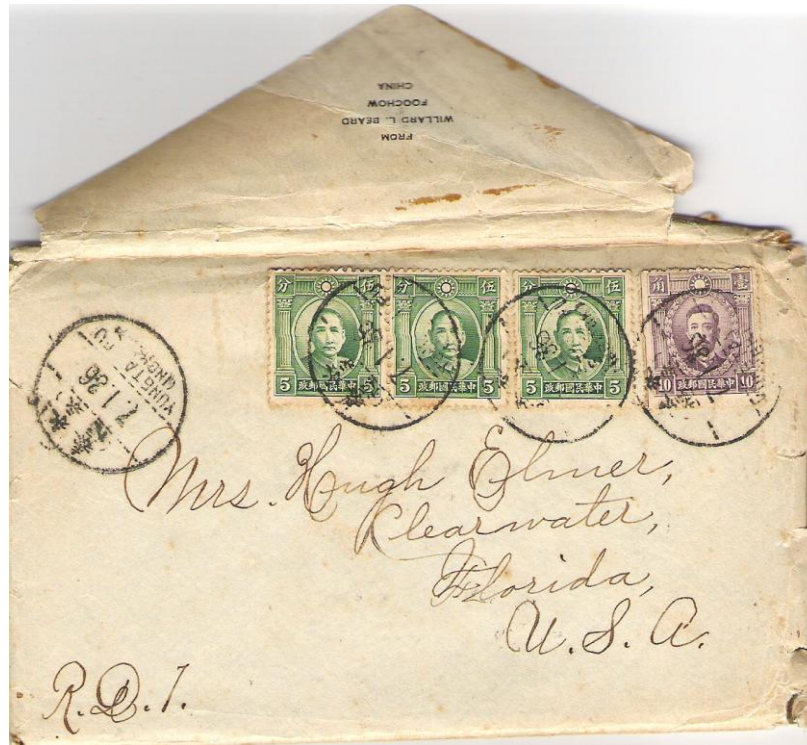 FROM
WILLARD L. BEARD
FOOCHOW
CHINA
分 伍
5 5
中華民國郵政
分 伍
5 5
中華民國郵政
分 伍
5 5
中華民國郵政
角 壹
10 10
中華民國郵政
YUNGTAI FU
7.1.36
Mrs. Hugh Elmer,
Clearwater,
Florida,
U. S. A.